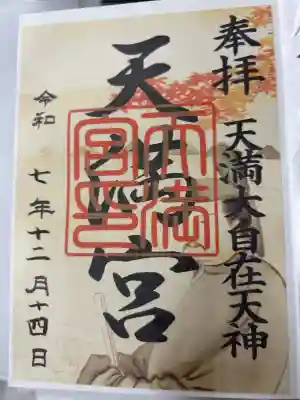 奉拝
天満大自在天神
天満宮
天満宮印
令和七年十二月十四日